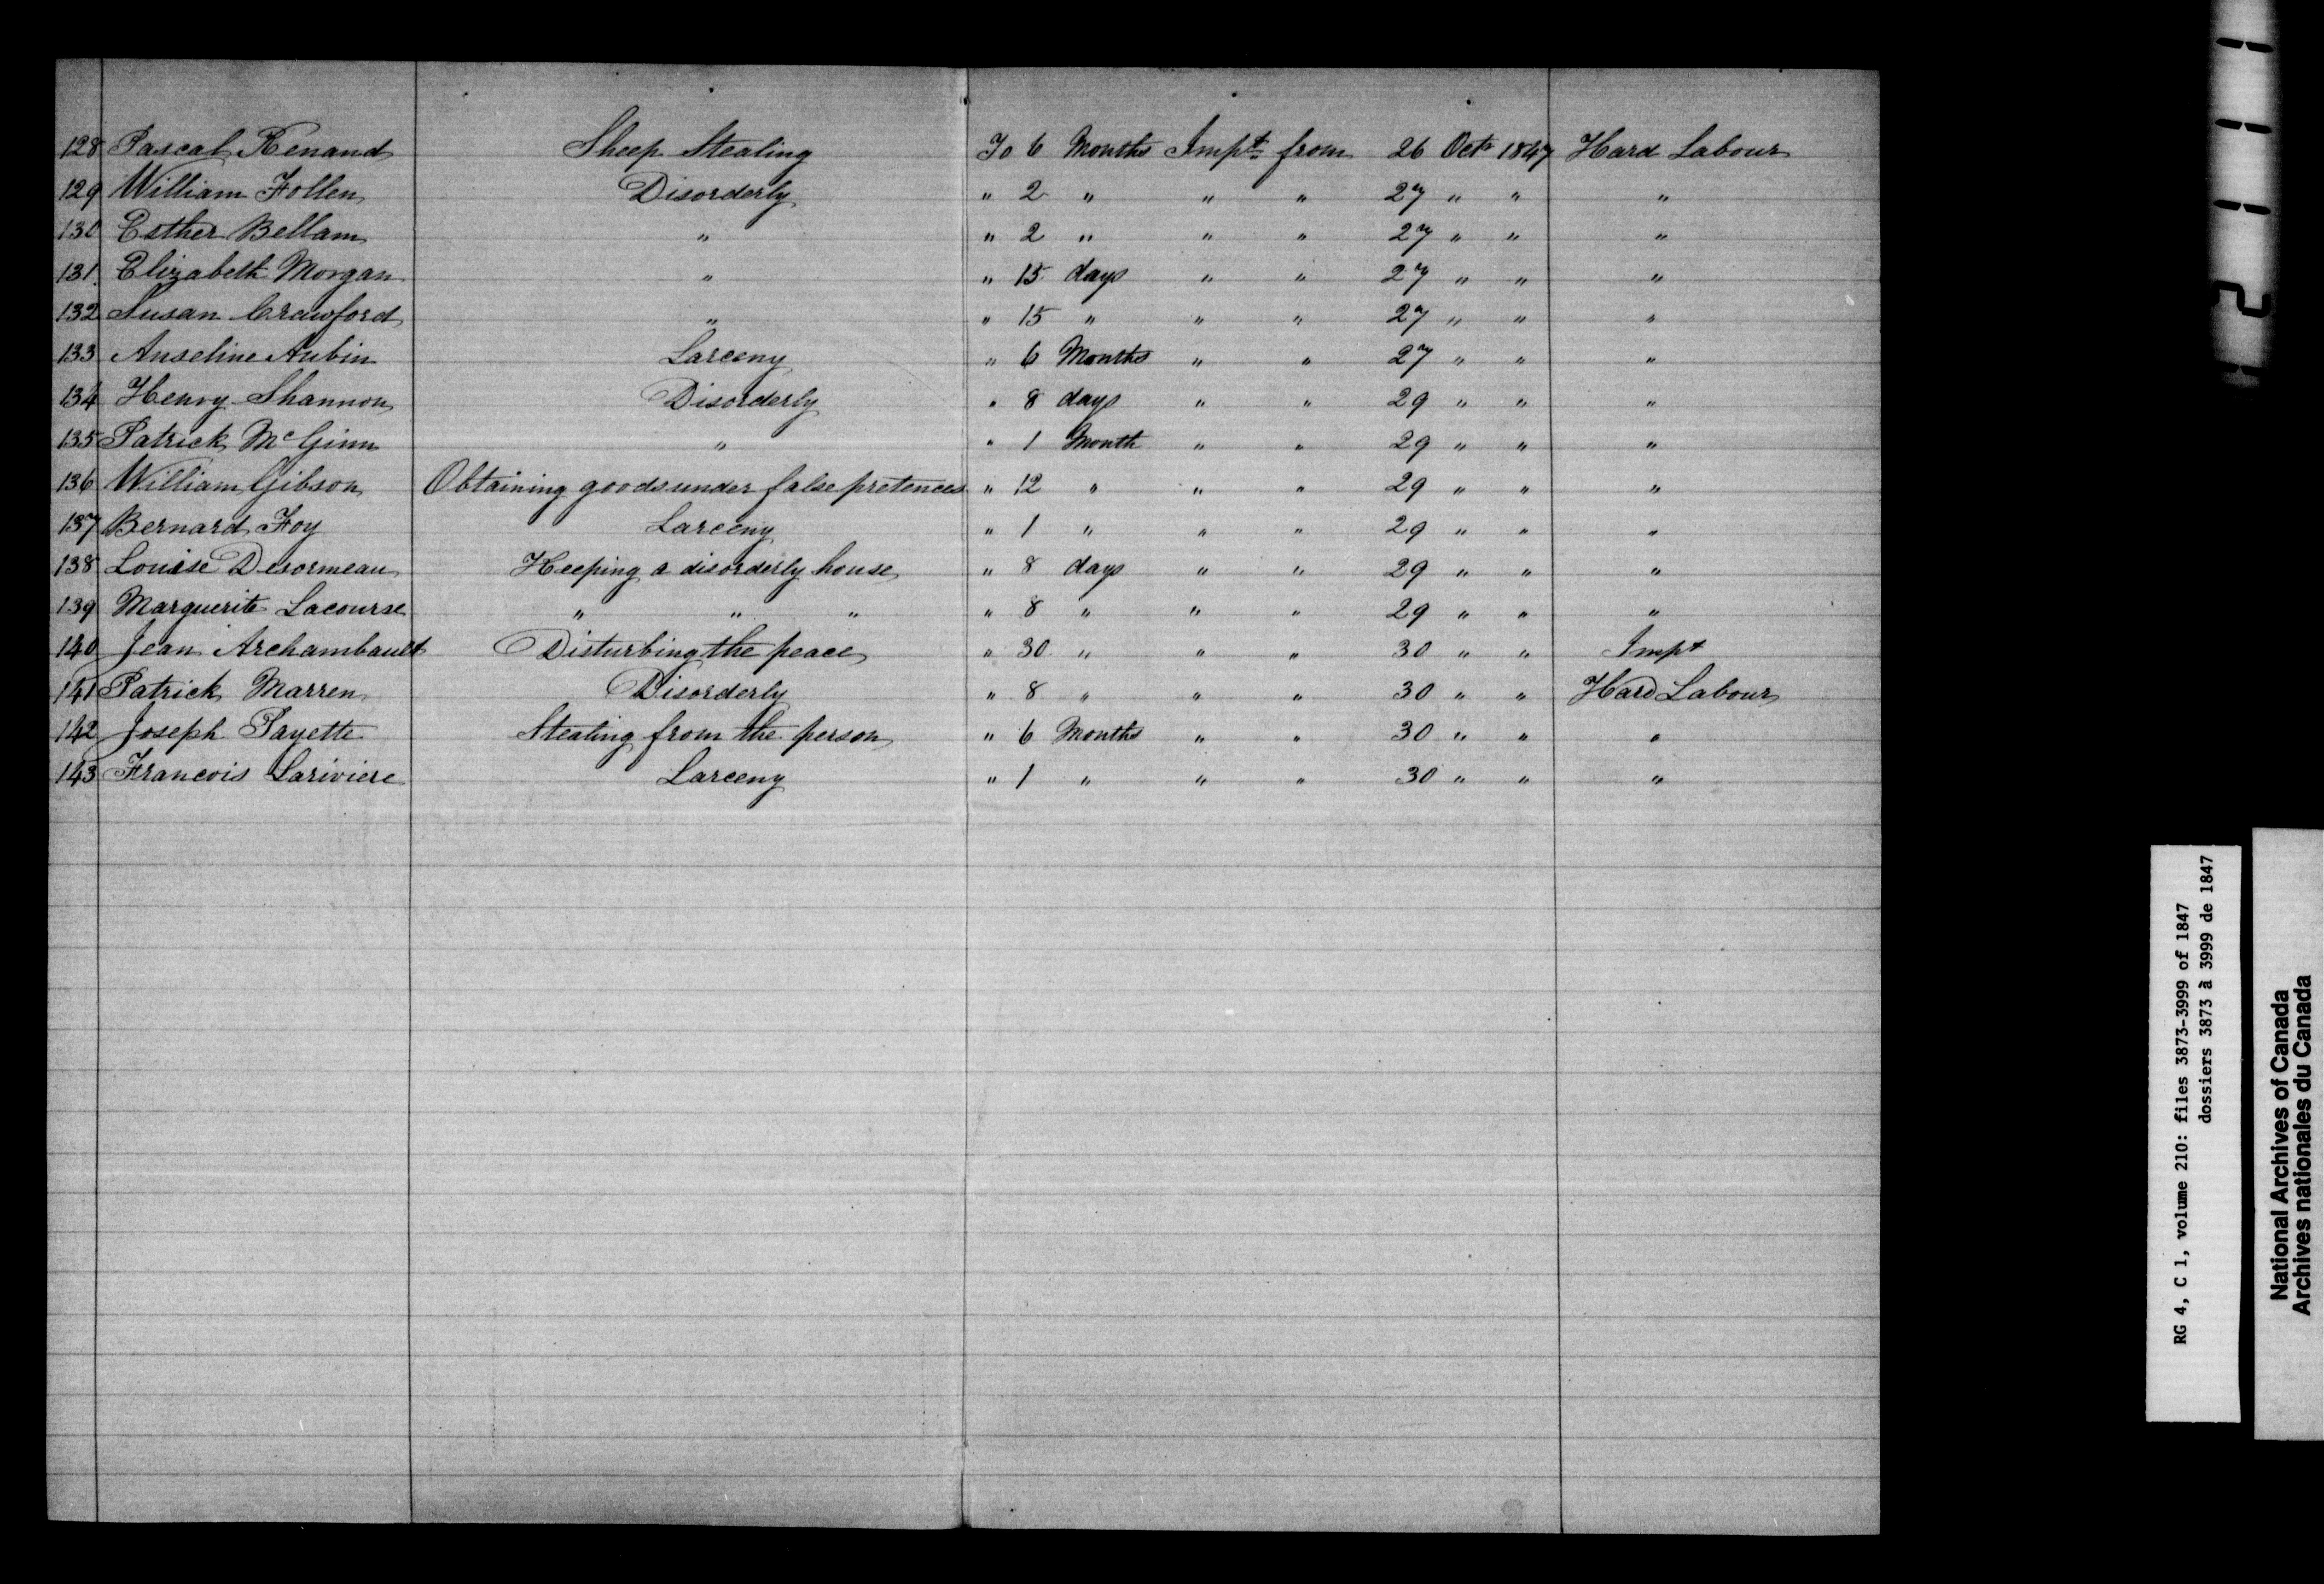 128 Pascal Renaud Sheep Stealing To 6 Months Impt. from 26 Octr 1847 Hard Labour
129 William Follen Disorderly " 2 " " " 27 " " "
130 Esther Bellam " " 2 " " " 27 " " "
131. Elizabeth Morgan " " 15 days " " 27 " " "
132 Susan Crawford " " 15 " " " 27 " " "
133 Anseline Aubin Larceny " 6 Months " " 27 " " "
134 Henry Shannon Disorderly " 8 days " " 29 " " "
135 Patrick McGinn " " 1 Month " " 29 " " "
136 William Gibson Obtaining goods under false pretences " 12 " " " 29 " " "
137 Bernard Foy Larceny " 1 " " " 29 " " "
138 Louise Desormeau Keeping a disorderly house " 8 days " " 29 " " "
139 Marguerite Lacourse " " " " 8 " " " 29 " " "
140 Jean Archambault Disturbing the peace " 30 " " " 30 " " Impt
141 Patrick Marren Disorderly " 8 " " " 30 " " Hard Labour
142 Joseph Payette Stealing from the person " 6 Months " " 30 " " "
143 Francois Lariviere Larceny " 1 " " " 30 " " "
2
RG 4, C 1, volume 210: files 3873-3999 of 1847
dossiers 3873 à 3999 de 1847
National Archives of Canada
Archives nationales du Canada